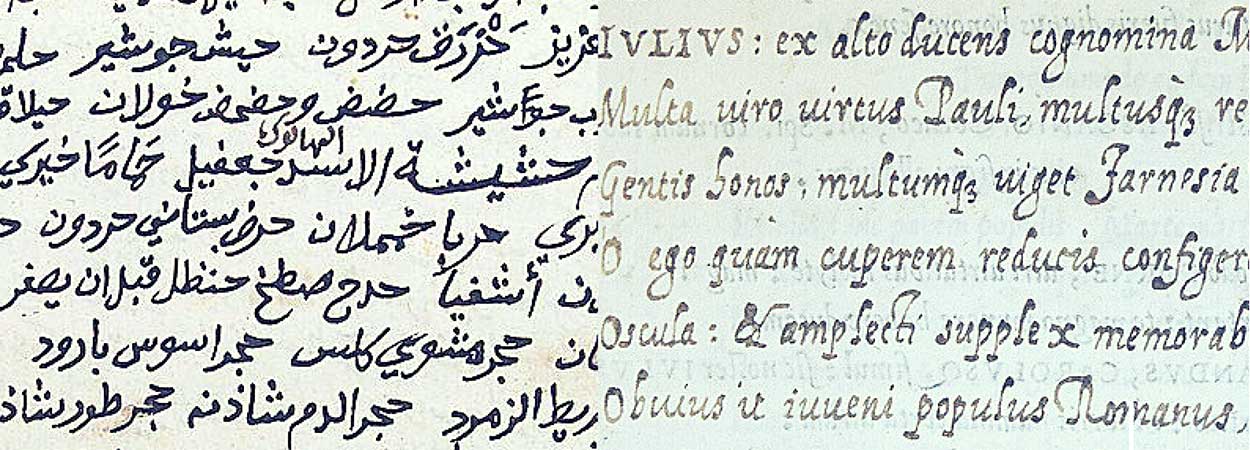 عزيز حردون حبش جوشير
جواشير حضض وحضض خولان
الهالوك
حشيشة الاسد جعفيل حماما خيري
بري حربا حرف بستاني حردون
حدج حنظل قبل ان يصفر
حجر مشوي كلس حجر اسوس بارود
الزمرد حجر الدم شاذنه حجر طور
IVLIVS: ex alto ducens cognomina
Multa uiro uirtus Pauli, multusq̀ꝫ re
Gentis honos; multumq̀ꝫ uiget Farnesia
O ego quam cuperem reducis configere
Oscula: & amplecti supplex memorab
Obuius ut iuueni populus Romanus,